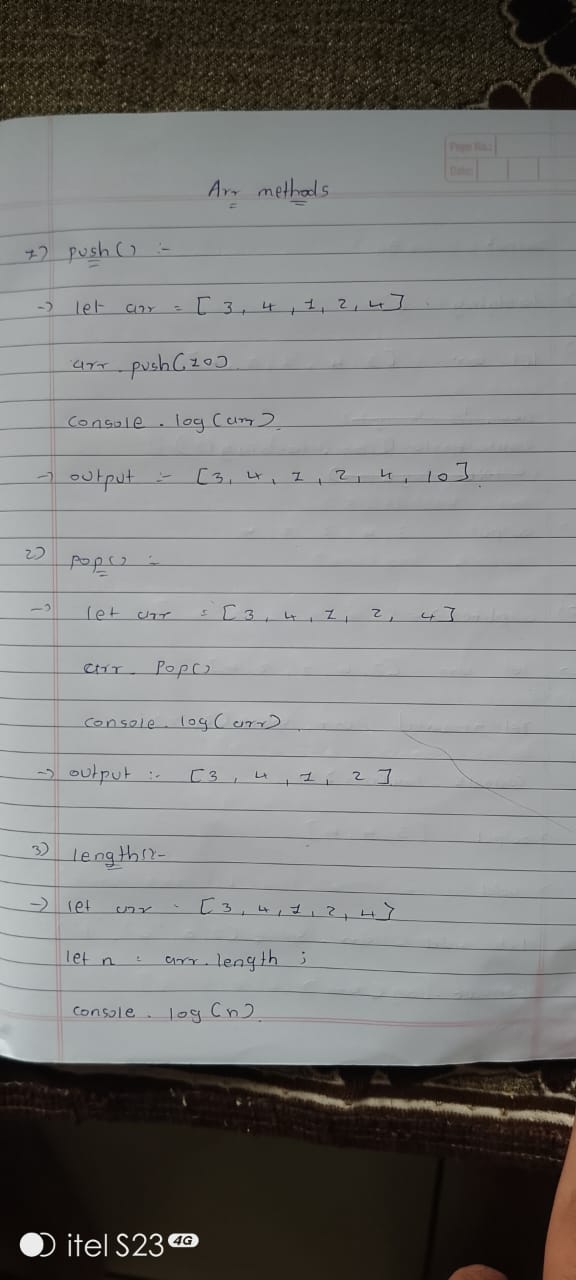 Page No.:
Date:
Arr methods
1) push() :-
→ let arr = [3, 4, 1, 2, 4]
arr. push(10)
console . log (arr)
→ output :- [3, 4, 1, 2, 4, 10]
2) pop() :-
→ let arr = [3, 4, 1, 2, 4]
arr. Pop()
console. log (arr)
→ output :- [3, 4, 1, 2]
3) length():-
→ let arr = [3, 4, 1, 2, 4]
let n = arr. length ;
console . log (n)
itel S23 4G